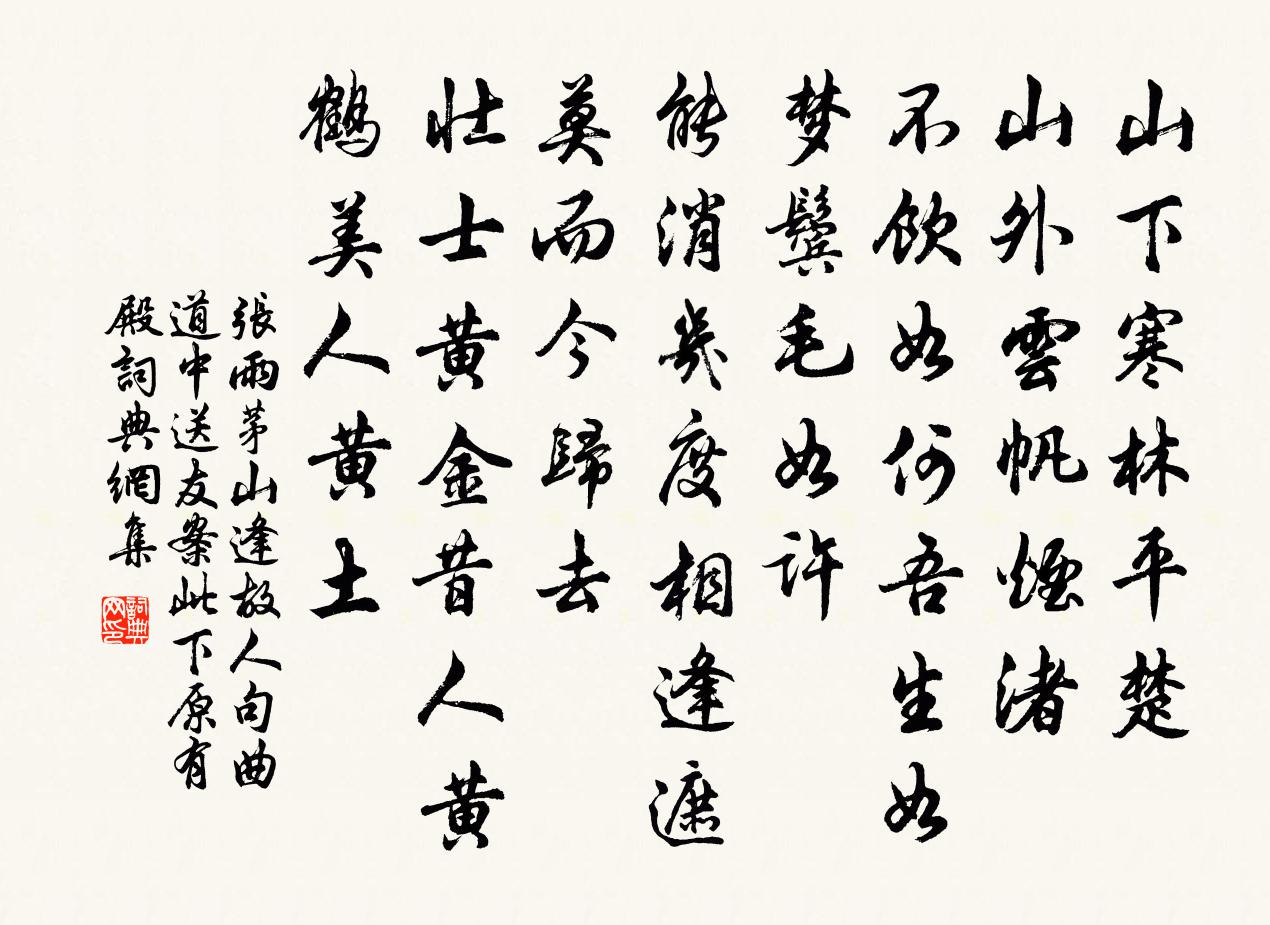 山下寒林平楚
山外雲帆煙渚
不飲如何吾生如
梦鬓毛如许
能消幾度相逢遮
莫而今歸去
壮士黄金昔人黄
鹤美人黄土
張雨茅山逢故人句曲
道中送友案此下原有
殿詞典網集
詞典网印